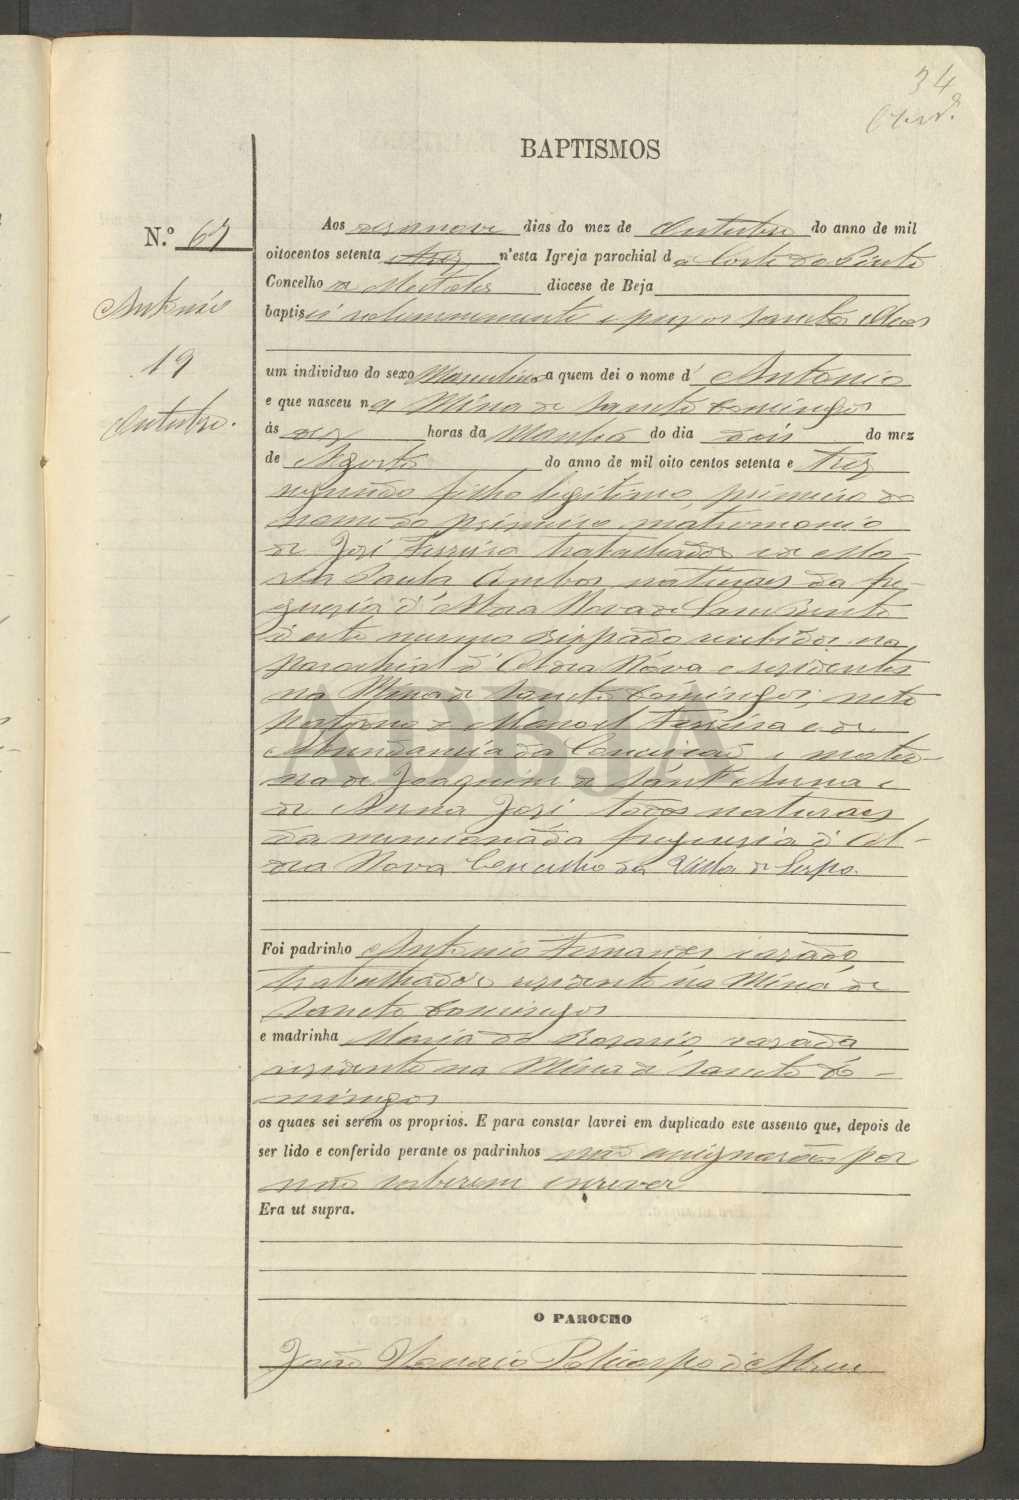 34
BAPTISMOS
N.º 67
Antonio
19
Outubro.
Aos desanove dias do mez de Outubro do anno de mil
oitocentos setenta e trez n'esta Igreja parochial da Corte do Pinto
Concelho de Mertola diocese de Beja
baptisei solemnemente e puz os sanctos oleos
um individuo do sexo Masculino a quem dei o nome d' Antonio
e que nasceu na Mina de Sancto Domingos
ás dez horas da Manhã do dia dois do mez
de Agosto do anno de mil oito centos setenta e trez
segundo filho legitimo, primeiro do
nome do primeiro matrimonio
de José Ferreira trabalhador e de Ma-
ria Paula ambos naturaes da fre-
guesia d'Aldea Nova de Sam Bento
d'este mesmo Bispado recebidos na
parochial d'Aldea Nova e residentes
na Mina de Sancto Domingos; neto
paterno de Manoel Ferreira e de
Abundancia da Conceição e mater-
na de Joaquim de Sant'Anna e
de Anna José todos naturaes
da mencionada freguesia d'Al-
dea Nova Concelho da Villa de Serpa.
ADBJA
Foi padrinho Antonio Fernandes casado
trabalhador, residente na Mina de
Sancto Domingos
e madrinha Maria do Rosario casada
residente na Mina de Sancto Do-
mingos
os quaes sei serem os proprios. E para constar lavrei em duplicado este assento que, depois de
ser lido e conferido perante os padrinhos não assignarão por
não saberem escrever
Era ut supra.
O PAROCHO
João Honorio Policarpo d'Abreu